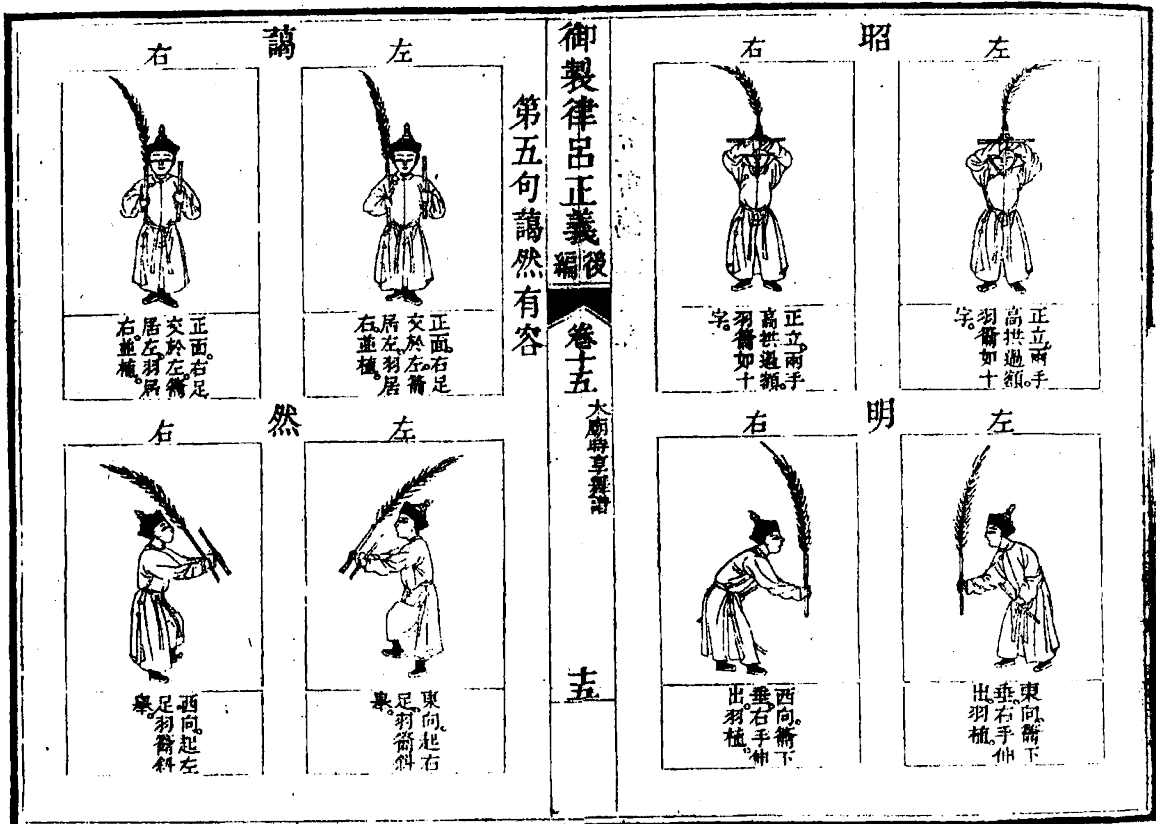 昭
左
正立兩手
高拱過額
羽籥如十
字。
右
正立。兩手
高拱過額。
羽籥如十
字。
明
左
東向。籥下
垂。右手伸
出。羽植。
右
西向。籥下
垂。右手伸
出。羽植。
御製律呂正義後編
卷十五
太廟時享舞譜
十五
第五句藹然有容
藹
左
正面。右足
交於左。籥
居左。羽居
右。並植。
右
正面。右足
交於左。籥
居左。羽居
右。並植。
然
左
東向。起右
足。羽籥斜
舉。
右
西向。起左
足。羽籥斜
舉。